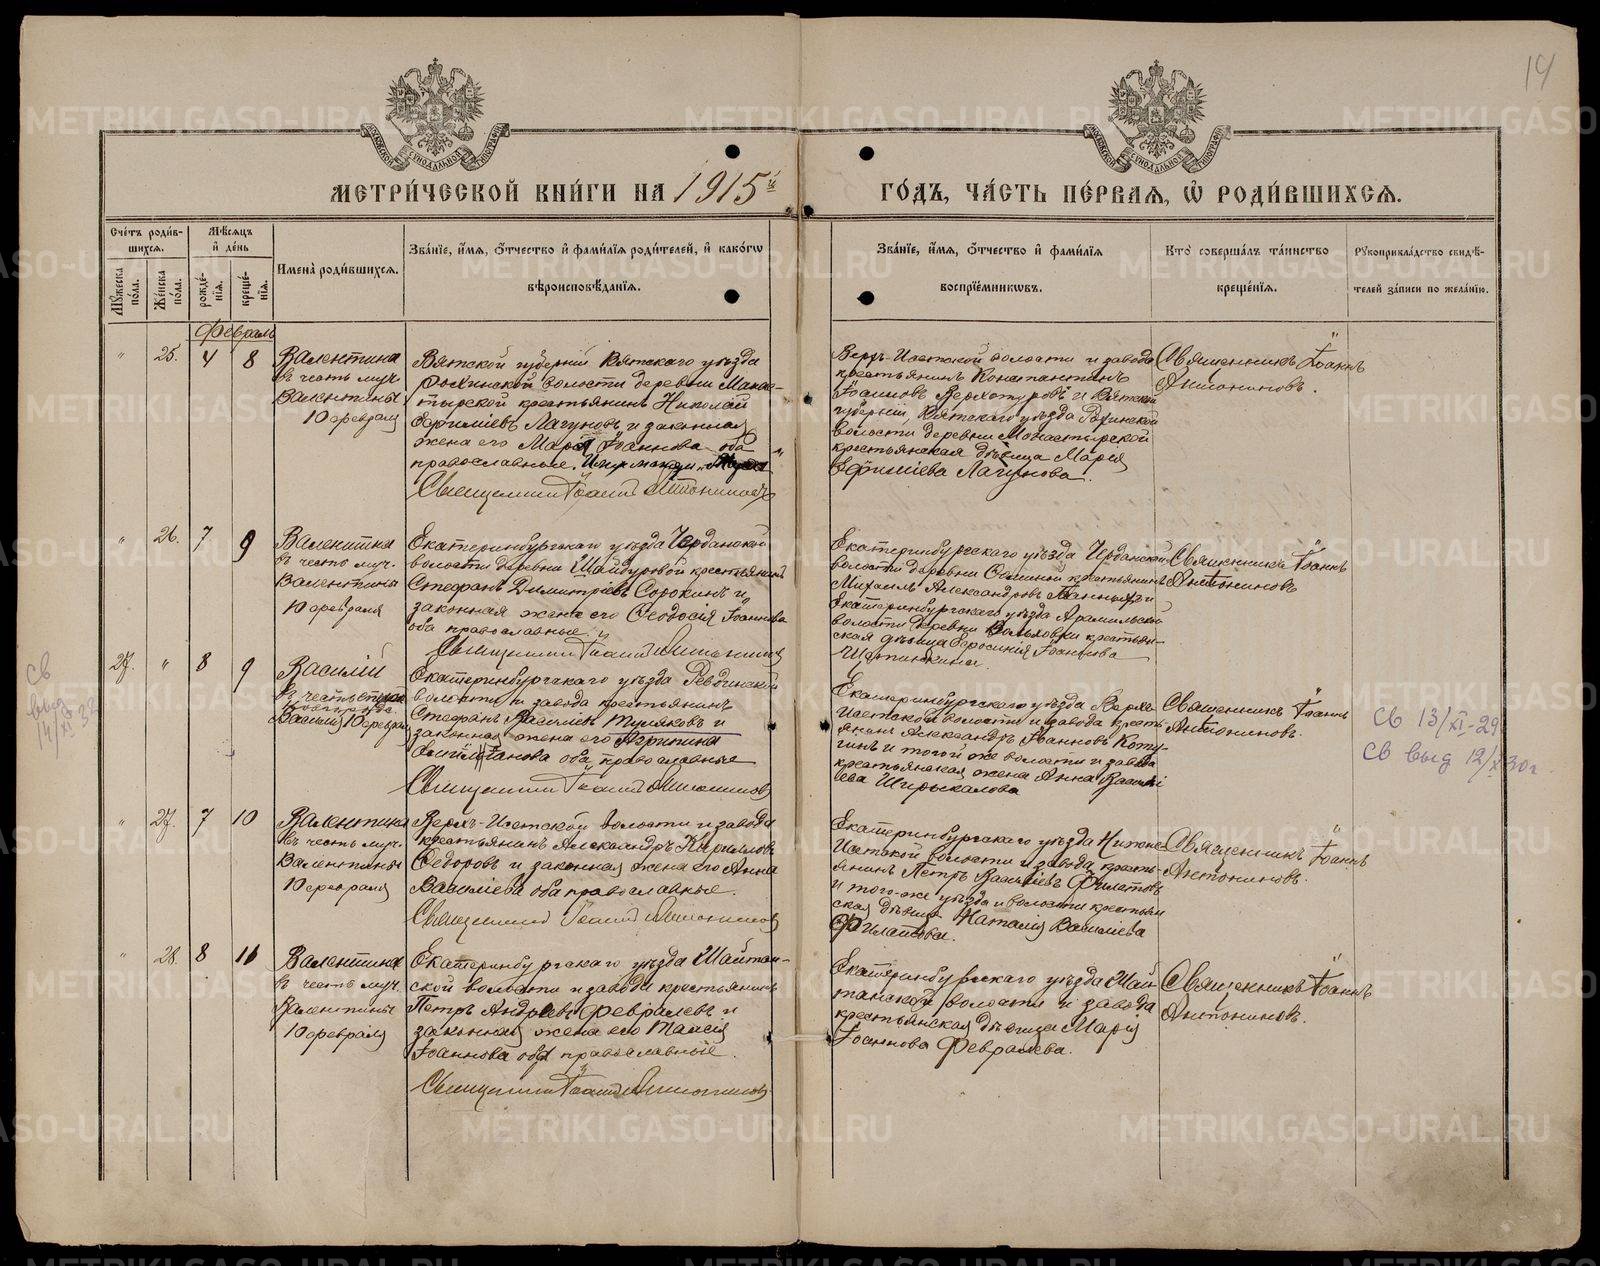 14
МЕТРИ́ЧЕСКОЙ КНИ́ГИ НА 1915й
ГО́ДЪ, ЧА́СТЬ ПЕ́РВАѦ, Ѡ РОДИ́ВШИХСѦ.
Сче́тъ роди́в-
шихсѧ.
Мѣсѧцъ
и҆ де́нь
Мꙋ́жеска по́ла.
Же́нска по́ла.
рожде́-
нїѧ.
креще́-
нїѧ.
Имена̀ роди́вшихсѧ.
Зва́нїе, и҆́мѧ, ѻ҆́тчество и҆ фами́лїѧ роди́телей, и҆ како́гѡ
вѣроисповѣ́данїѧ.
Зва́нїе, и҆́мѧ, ѻ҆́тчество и҆ фами́лїѧ
воспрїе́мникѡвъ.
Кто̀ соверша́лъ та́инство
креще́нїѧ.
Рꙋкоприкла́дство свидѣ́-
телей за́писи по жела́нїю.
Февраль
" 25. 4 8
Валентина
въ честь муч.
Валентины
10 февраля
Вятской губерніи Вятскаго уѣзда
волости деревни Монас-
тырской крестьянинъ Николай
Ефиміевъ Лагуновъ и законная
жена его Марія Іоаннова оба
православные.
Священникъ Іоаннъ Антониновъ
Верхъ-Исетской волости и завода
крестьянинъ Константинъ
Іоанновъ Верхотуровъ и Вятской
губерніи, Вятскаго уѣзда
волости деревни Монастырской
крестьянская дѣвица Марія
Ефиміева Лагунова.
Священникъ Іоаннъ
Антониновъ.
" 26. 7 9
Валентина
въ честь муч.
Валентины
10 февраля
Екатеринбургскаго уѣзда
волости деревни Шайдуровой крестьянинъ
Стефанъ Димитріевъ Сорокинъ и
законная жена его Ѳеодосія Іоаннова
оба православные
Священникъ Іоаннъ Антониновъ
Екатеринбургскаго уѣзда
волости деревни крестьянинъ
Михаилъ Александровъ и
Екатеринбургскаго уѣзда Арамильской
волости деревни крестьян-
ская дѣвица Іоаннова
Священникъ Іоаннъ
Антониновъ
27. " 8 9
Василій
въ честь
Василія 10 февраля
Екатеринбургскаго уѣзда Ревдинской
волости и завода крестьянинъ
Стефанъ Туляковъ и
законная жена его Агрипина
оба православные
Священникъ Іоаннъ Антониновъ
Екатеринбургскаго уѣзда Верхъ-
Исетской волости и завода кресть-
янинъ Александръ Іоанновъ
и тогой же волости и завода
крестьянская жена Анна Василь
ева Ширыкалова
Священникъ Іоаннъ
Антониновъ.
св
выд
14/XI 32
Св 13/XI-29
Св выд 12/X 30г.
" 27. 7 10
Валентина
въ честь муч.
Валентины
10 февраля
Верхъ-Исетской волости и завода
крестьянинъ Александръ Кирилловъ
Ѳедоровъ и законная жена его Анна
Василіева оба православные.
Священникъ Іоаннъ Антониновъ
Екатеринбургскаго уѣзда Нижне-
Исетской волости и завода кресть-
янинъ Петръ Василіевъ Филатовъ
и того-же уѣзда и волости крестьян
ская дѣвица Наталія Василіева
Филатова.
Священникъ Іоаннъ
Антониновъ.
" 28. 8 11
Валентина
въ честь муч.
Валентины
10 февраля
Екатеринбургскаго уѣзда Шайтан-
ской волости и завода крестьянинъ
Петръ Андреевъ Февралевъ и
законная жена его Таисія
Іоаннова оба православные.
Священникъ Іоаннъ Антониновъ
Екатеринбургскаго уѣзда Шай-
танской волости и завода
крестьянская дѣвица Марія
Іоаннова Февралева.
Священникъ Іоаннъ
Антониновъ.
METRIKI.GASO-URAL.RU